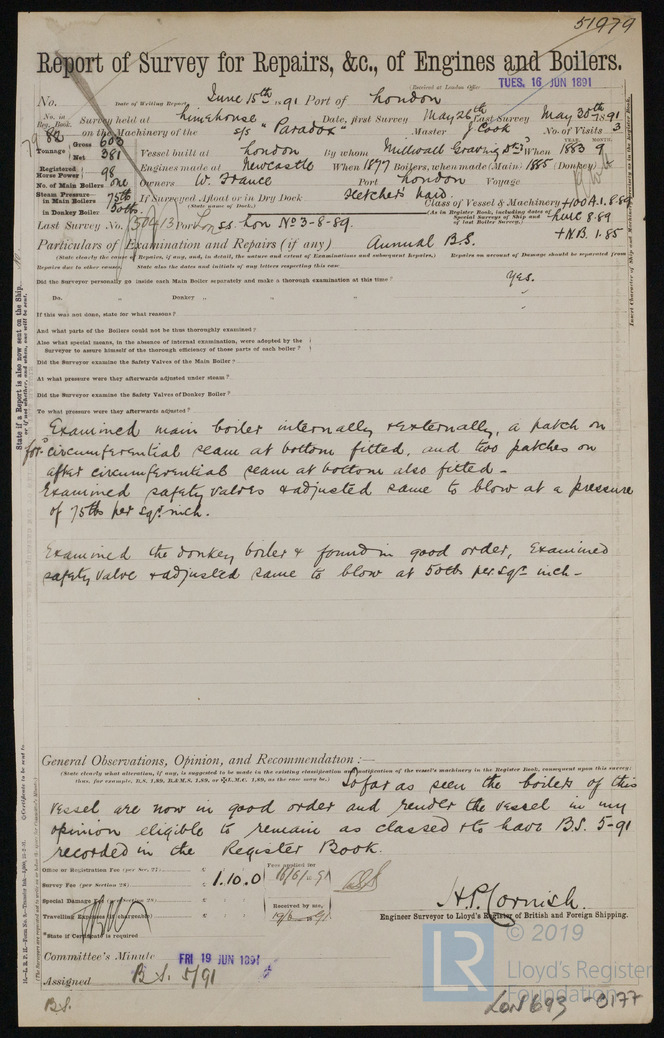 51979
Report of Survey for Repairs, &c., of Engines and Boilers.
Received at London Office TUES. 16 JUN 1891
No. Date of Writing Report June 15th 1891 Port of London
No. in Reg. Book. Survey held at Limehouse Date, first Survey May 26th Last Survey May 30th 1891
82 on the Machinery of the s/s "Paradox" Master J Cook No. of Visits 3
Tonnage Gross 603 Net 381 Vessel built at London By whom Millwall Graving Dk Co When YEAR. 1883 MONTH. 9
Registered Horse Power 98 Engines made at Newcastle When 1877 Boilers, when made (Main) 1885 (Donkey)
No. of Main Boilers one Owners W. France Port London Voyage
Steam Pressure in Main Boilers 75lb If Surveyed Afloat or in Dry Dock Fletcher's
(State name of Dock.)
in Donkey Boiler 50lb Class of Vessel & Machinery +100 A.1. 8.89
(As in Register Book, including dates of Special Surveys of Ship and of last Boiler Survey.) 8.89
+N.B. 1.85
Last Survey No. 50413 Port Lon ss. Lon No 3-8-89.
Particulars of Examination and Repairs (if any) Annual B.S.
(State clearly the cause of Repairs, if any, and, in detail, the nature and extent of Examinations and subsequent Repairs.) Repairs on account of Damage should be separated from
Repairs due to other causes State also the dates and initials of any letters respecting this case
Did the Surveyor personally go inside each Main Boiler separately and make a thorough examination at this time? Yes.
Do. " Donkey " " "
If this was not done, state for what reasons?
And what parts of the Boilers could not be thus thoroughly examined?
Also what special means, in the absence of internal examination, were adopted by the
Surveyor to assure himself of the thorough efficiency of those parts of each boiler?
Did the Surveyor examine the Safety Valves of the Main Boiler?
At what pressure were they afterwards adjusted under steam?
Did the Surveyor examine the Safety Valves of Donkey Boiler?
To what pressure were they afterwards adjusted?
Examined main boiler internally & externally, a patch on
for'd circumferential seam at bottom fitted, and two patches on
after circumferential seam at bottom also fitted -
Examined safety valves & adjusted same to blow at a pressure
of 75lbs per sqr inch.
Examined the donkey boiler & found in good order, Examined
safety valve & adjusted same to blow at 50lbs per sqr inch -
General Observations, Opinion, and Recommendation :—
(State clearly what alteration, if any, is suggested to be made in the existing classification and notification of the vessel's machinery in the Register Book, consequent upon this survey;
thus, for example, B.S. 1.89, B.&M.S. 1.89, or L.M.C. 1.89, as the case may be.)
So far as seen the boilers of this
vessel are now in good order and render the vessel in my
opinion eligible to remain as classed & to have B.S. 5-91
recorded in the Register Book.
Office or Registration Fee (per Sec. 27) £ Fees applied for
Survey Fee (per Section 28) £ 1.10.0 16/6/1891
Special Damage Fee (per Section 28) £ Received by me,
Travelling Expenses (if chargeable) £ 19/6 1891
*State if Certificate is required
H.P. Cornish.
Engineer Surveyor to Lloyd's Register of British and Foreign Shipping.
Committee's Minute FRI 19 JUN 1891
Assigned B.S. 5/91
B.S.
LR
© 2019
Lloyd's Register
Foundation
LON 693 - 0177
State if a Report is also now sent on the Ship.